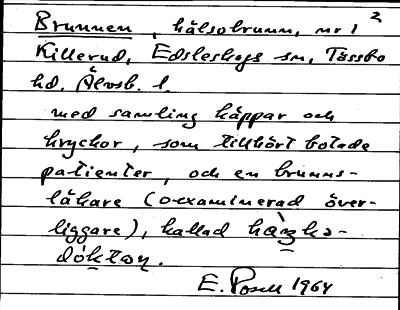 2
Brunnen, hälsobrunn, nr 1
Killerud, Edsleskogs sn, Tössbo
hd. Älvsb. l.
med samling käppar och
kryckor, som tillhört botade
patienter, och en brunns-
läkare (oexaminerad över-
liggare), kallad
E. 1964